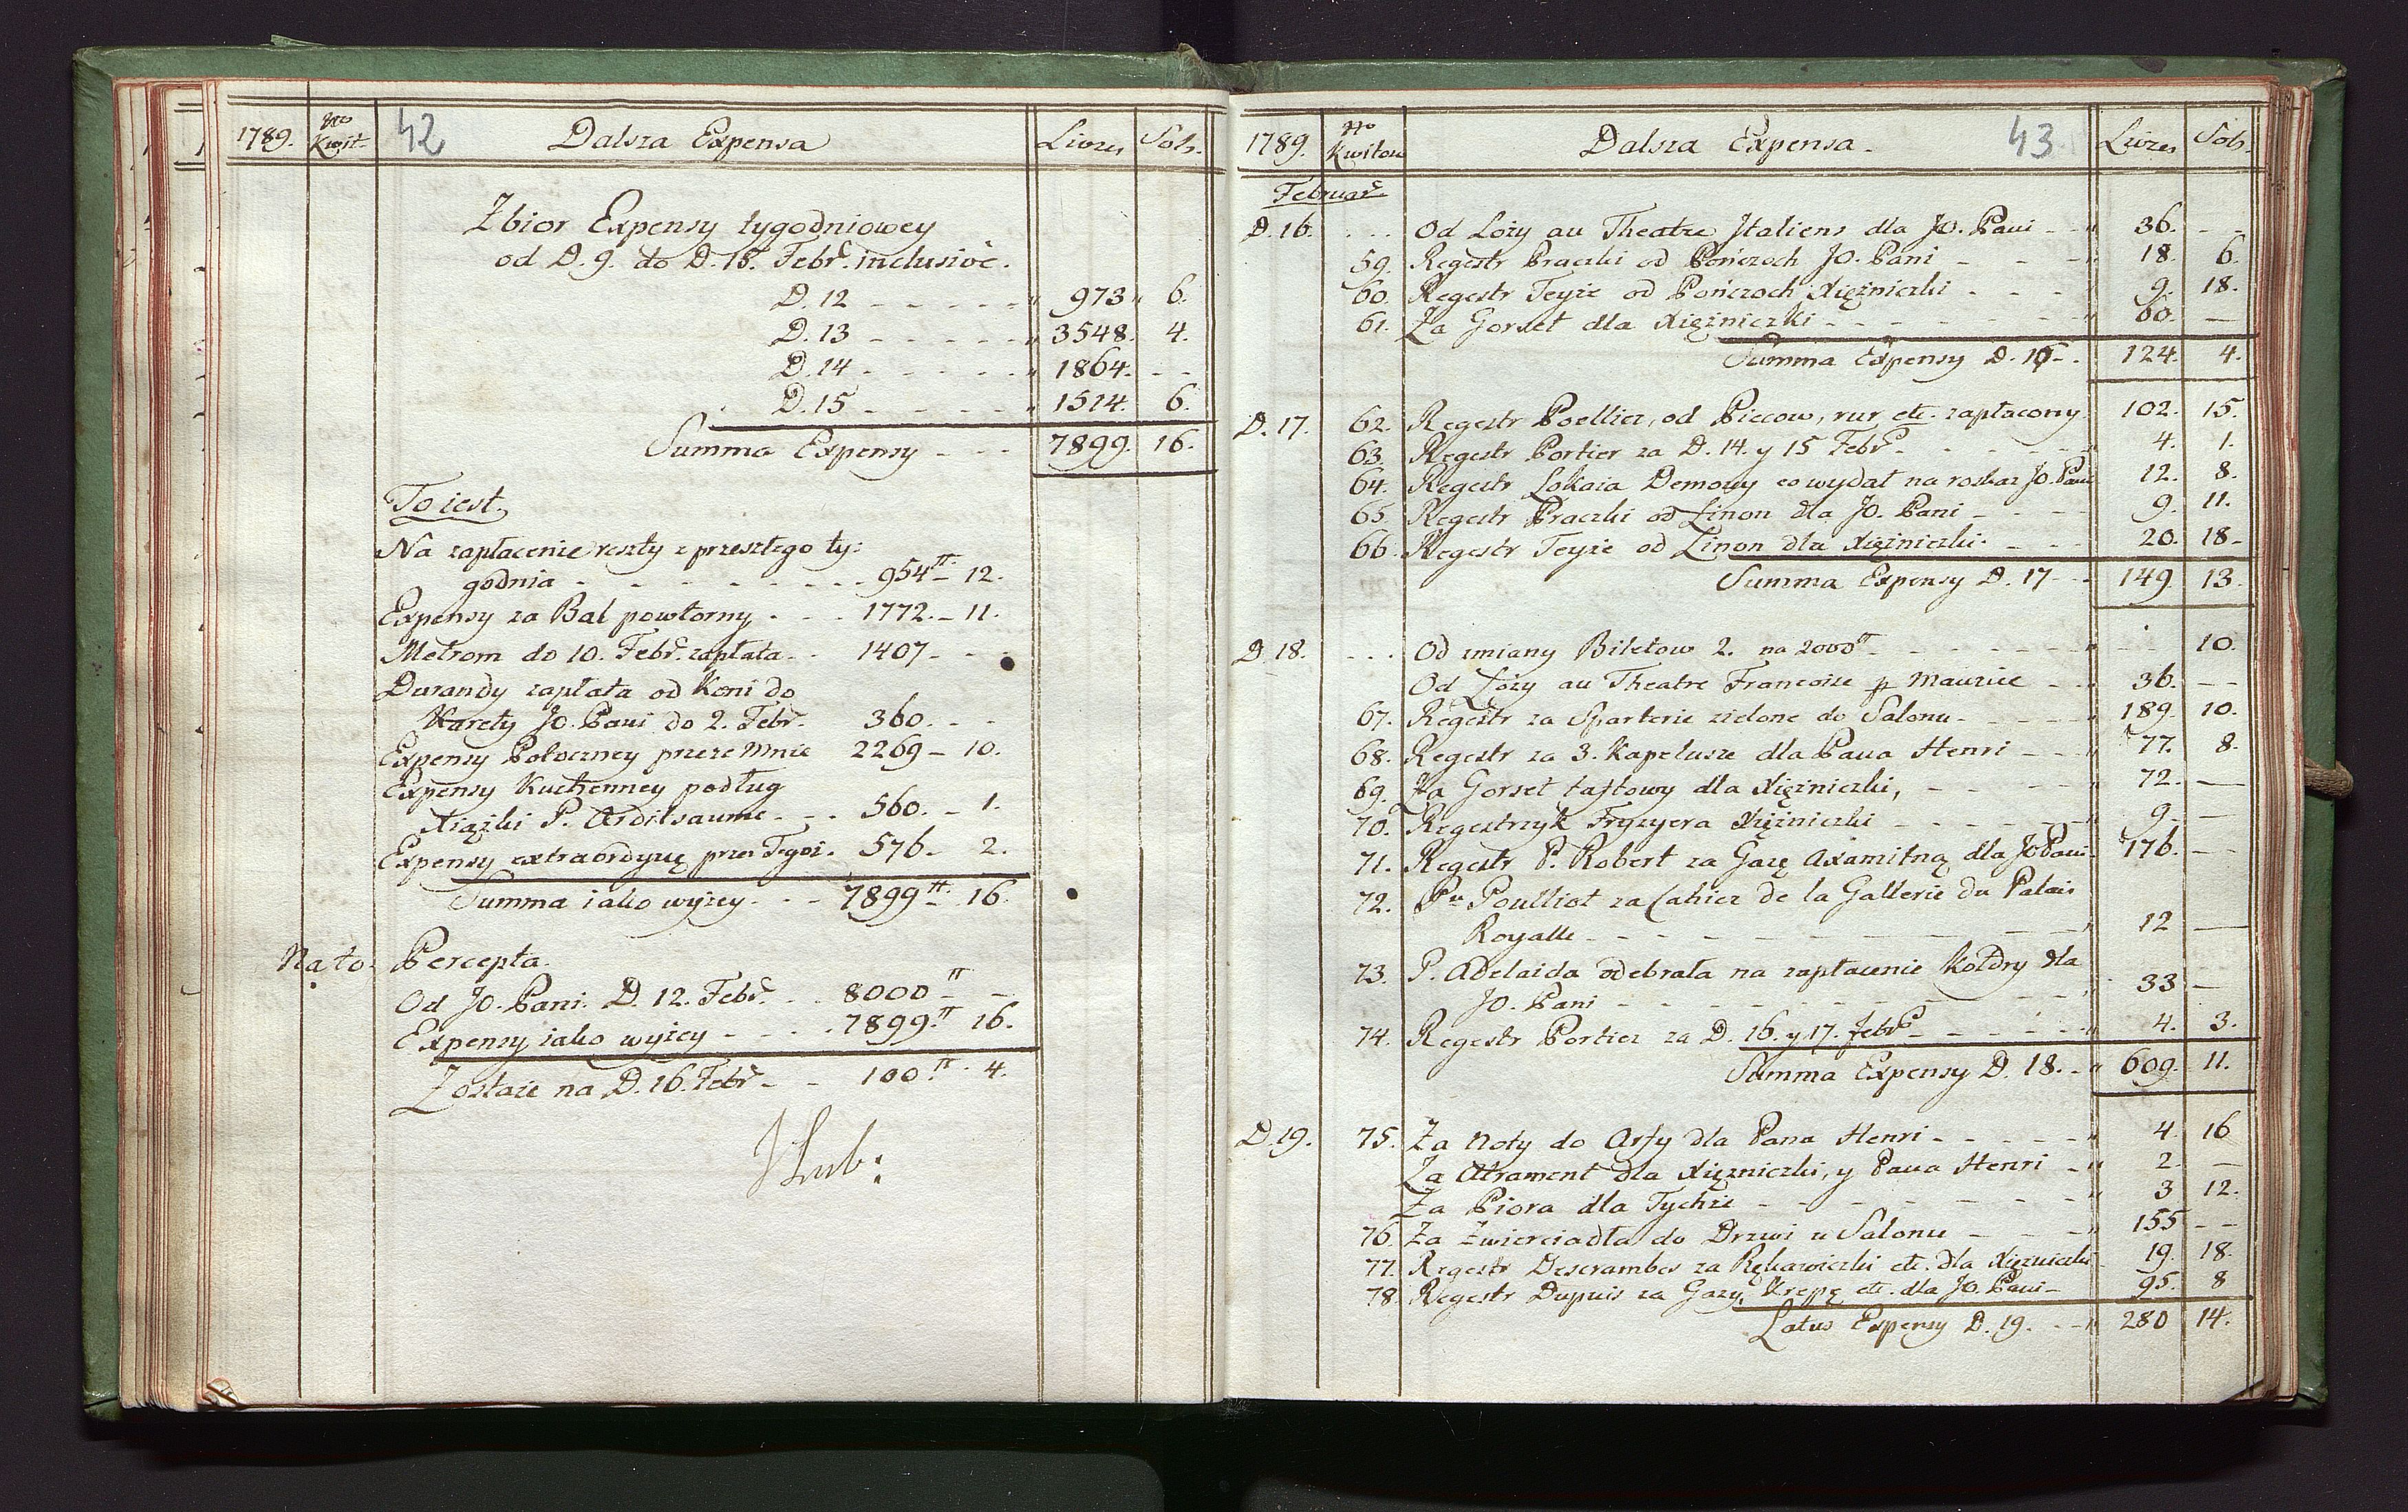 1789. No Kwit. 42 Dalsza Expensa Livres Sols.
Zbior Expensy tygodniowey
od D. 9. do D. 15. Febr. inclusivè.
D. 12 - - - - - 973 " 6.
D. 13 - - - - - 3548. 4.
D. 14 - - - - - 1864. - -
D. 15 - - - - - 1514. 6.
Summa Expensy - - - 7899. 16.
To iest.
Na zapłacenie reszty z przeszłego ty:
godnia - - - - - - - - 954 tt - 12.
Expensy za Bal powtorny - - - 1772. - 11.
Metrom do 10. Febr. zapłata - - 1407 - - -
Durandy zapłata od Koni do
Karety JO. Pani do 2. Febr. 360. - -
Expensy Potoczney przeze Mnie 2269 - 10.
Expensy Kuchenney podług
Xiążki P. Ardilsaume - - - 560. - 1.
Expensy extraordyną przez Tegoż. 576 - 2.
Summa iako wyżey - - - 7899 tt 16.
Na to. Percepta.
Od JO. Pani. D. 12. Febr. - - 8000 tt - -
Expensy iako wyżey - - - - 7899. tt 16.
Zostaie na D. 16. Febr - - 100 tt . 4.
JLub:
1789. No Kwitow Dalsza Expensa. 43 Livres Sols.
Februar.
D. 16. . . . Od Loży au Theatre Italiens dla JO. Pani - - " 36. - -
59. Regestr Praczki od Pończoch JO. Pani - - - " 18. 6.
60. Regestr Teyże od Pończoch Xiężniczki - - - 9. 18.
61. Za Gorset dla Xiężniczki - - - - - - " 60. —
Summa Expensy D. 16 - . 124. 4.
D. 17. 62. Regestr Poellier, od Piecow, rur etc. zapłacony 102. 15.
63. Regestr Portier za D. 14. y 15 Febr. - - - - - 4. 1.
64. Regestr Lokaia Demony co wydał na rozkaz JO. Pani 12. 8.
65. Regestr Praczki od Linon dla JO. Pani - - - - 9. 11.
66. Regestr Teyże od Linon dla Xiężniczki - - - 20. 18 -
Summa Expensy D. 17 - - - 149. 13.
D. 18. . . . Od zmiany Biletow 2. na 2000 tt - - - - - - - " - - 10.
Od Loży au Theatre Francoise p Maurice - - " 36. - -
67. Regestr za Sparterie zielone do Salonu - - - - - " 189. 10.
68. Regestr za 3. Kapelusze dla Pana Henri - - - " 77. 8.
69. Za Gorset taftowy dla Xiężniczki, - - - - - " 72. —
70. Regestrzyk Fryzyera Xiężniczki - - - - - - " 9. —
71. Regestr P. Robert za Gazę Axamitną dla JO Pani - 176. - -
72. Pu Poulliot za Cahier de la Gallerie du Palais
Royalle - - - - - - - - - - - - " 12 —
73. P. Adelaida odebrała na zapłacenie Kołdry dla
JO. Pani - - - - - - - - - - - - " 33 —
74. Regestr Portier za D. 16. y 17. Febr. - - - - - - " 4. 3.
Summa Expensy D. 18. - " 609. 11.
D. 19. 75. Za Noty do Arfy dla Pana Henri - - - - - " 4. 16
Za Atrament dla Xiężniczki, y Pana Henri - " 2. —
Za Piora dla Tychże - - - - - - - - " 3 12.
76. Za Zwierciadła do Drzwi u Salonu - - - - " 155 - -
77. Regestr Descrambes za Rękawiczki etc. dla Xiężniczki 19. 18.
78. Regestr Dupuis za Gazy, Krepę etc. dla JO. Pani - 95. 8
Latus Expensy D. 19. - - " 280 14.